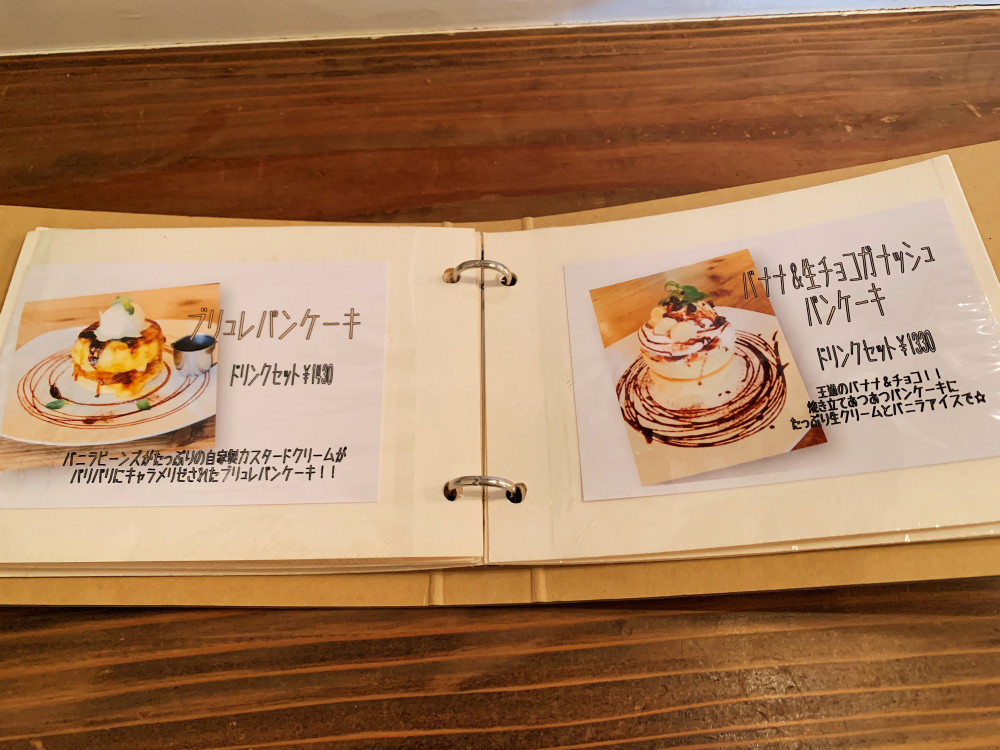 ブリュレパンケーキ
ドリンクセット¥1430
バニラビーンズがたっぷりの自家製カスタードクリームが
パリパリにキャラメリゼされたブリュレパンケーキ！！
バナナ&生チョコガナッシュ
パンケーキ
ドリンクセット¥1330
王道のバナナ&チョコ！！
焼き立てあつあつパンケーキに
たっぷり生クリームとバニラアイスで☆